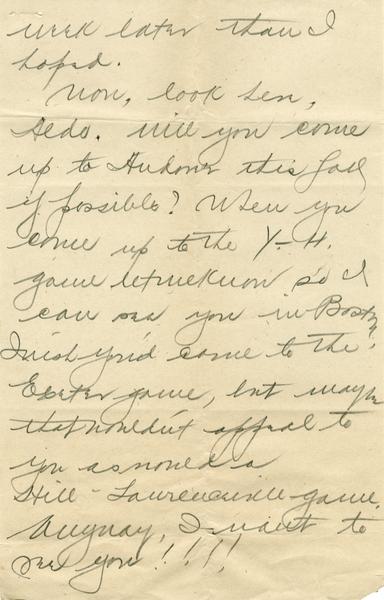 week later than I
hoped.
Now, look here,
Aldo. Will you come
up to Andover this fall
if possible? When you
come up to the Y-H.
game let me know so I
can see you in Boston.
I wish you'd come to the
Exeter game, but maybe
that wouldn't appeal to
you as would a
Hill-Lawrenceville game.
Anyway, I want to
see you!!!!